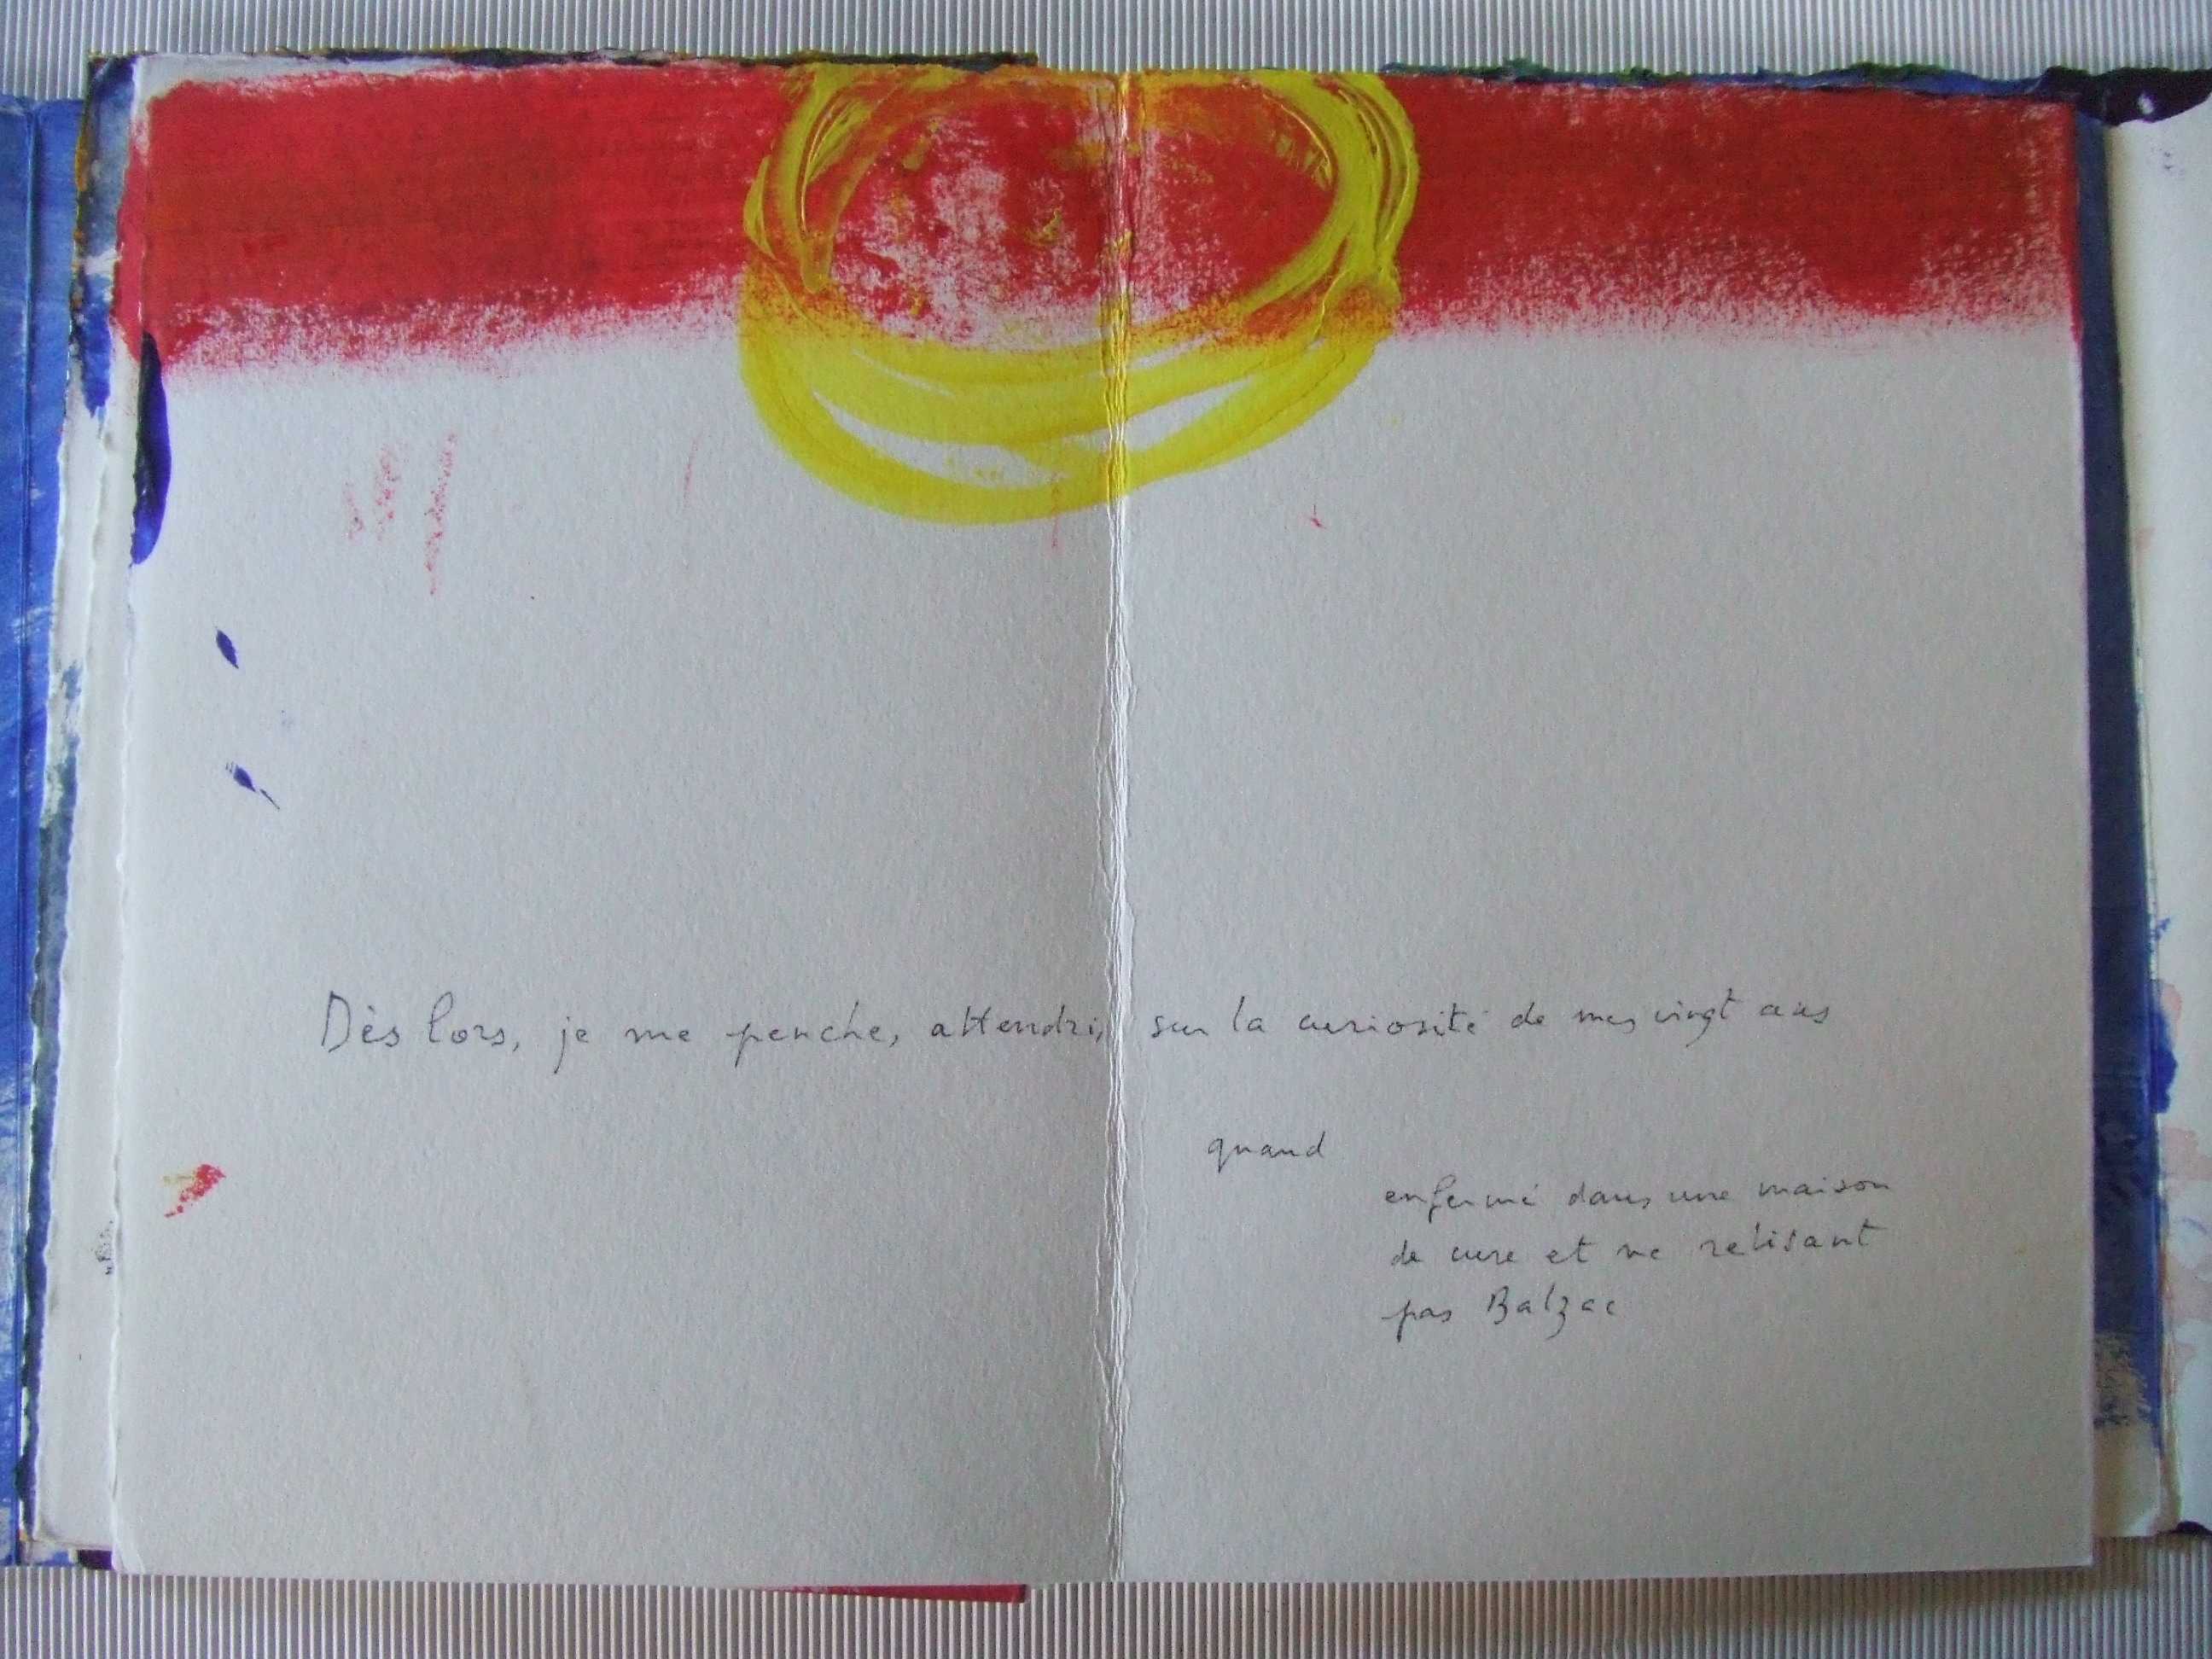 Dès lors, je me penche, attendri, sur la curiosité de mes vingt ans
quand
enfermé dans une maison
de cure et ne relisant
pas Balzac